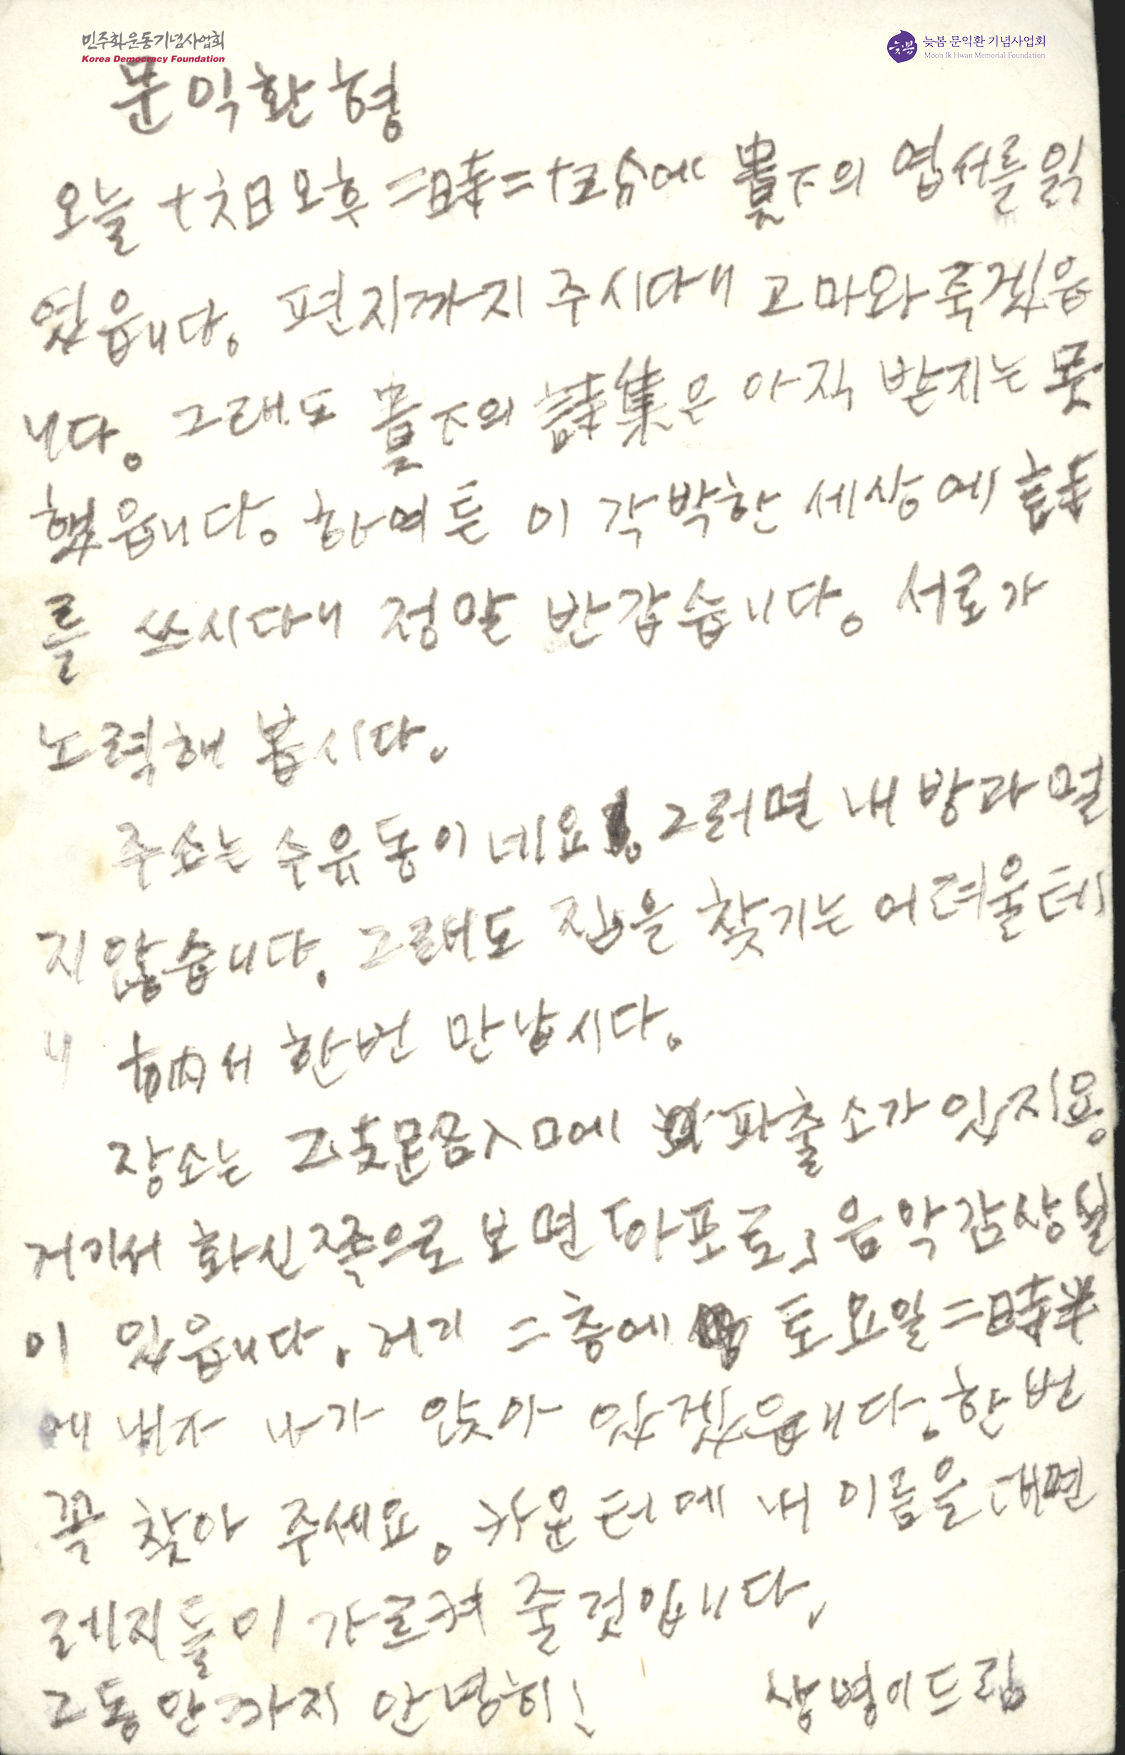 민주화운동기념사업회
Korea Democracy Foundation
늦봄
늦봄 문익환 기념사업회
Moon Ik Hwan Memorial Foundation
문익환형
오늘 十六日 오후 二時二十五分에 貴下의 엽서를 읽
었읍니다. 편지까지 주시다니 고마와 죽겠읍
니다. 그래도 貴下의 詩集은 아직 받지는 못
했읍니다. 하여튼 이 각박한 세상에 詩
를 쓰시다니 정말 반갑습니다. 서로가
노력해 봅시다.
주소는 수유동이네요. 그러면 내 방과 멀
지않습니다. 그래도 집을 찾기는 어려울테
니 市内서 한번 만납시다.
장소는 入口에 파출소가 있지용
거기서 화신쪽으로 보면 「아포로」 음악감상실
이 있읍니다. 거기 二층에 토요일 二時半
에 내가 앉아 있겠읍니다. 한번
꼭 찾아 주세요. 카운터에 내 이름을 대면
레지들이 가르켜 줄것입니다.
그동안까지 안녕히!
상병이드림